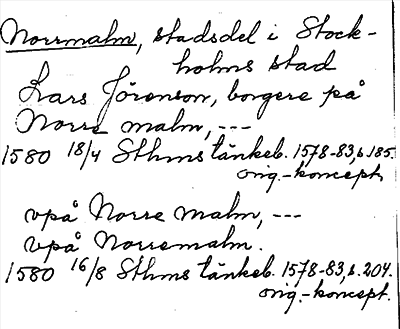 Norrmalm, stadsdel i Stock-
holms stad
Lars Jörenson, borgere på
Norre malm, ---
1580 18/4 Sthms tänkeb. 1578-83, s. 185.
orig.-koncept.
vpå Norre malm, ---
vpå Norremalm.
1580 16/8 Sthms tänkeb. 1578-83, s. 204.
orig.-koncept.